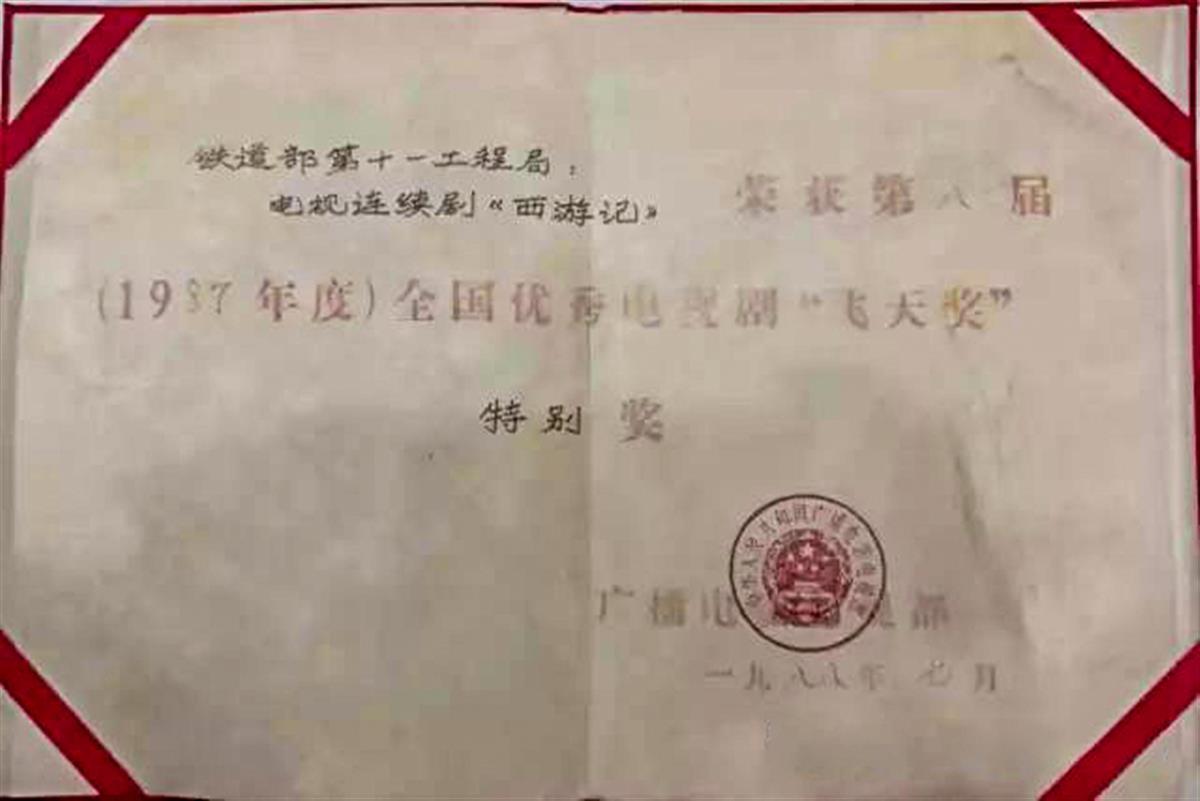 铁道部第十一工程局：
电视连续剧《西游记》 荣获第八届
(1987年度)全国优秀电视剧“飞天奖”
特别奖
中华人民共和国广播电影电视部
广播电影电视部
一九八八年 七月